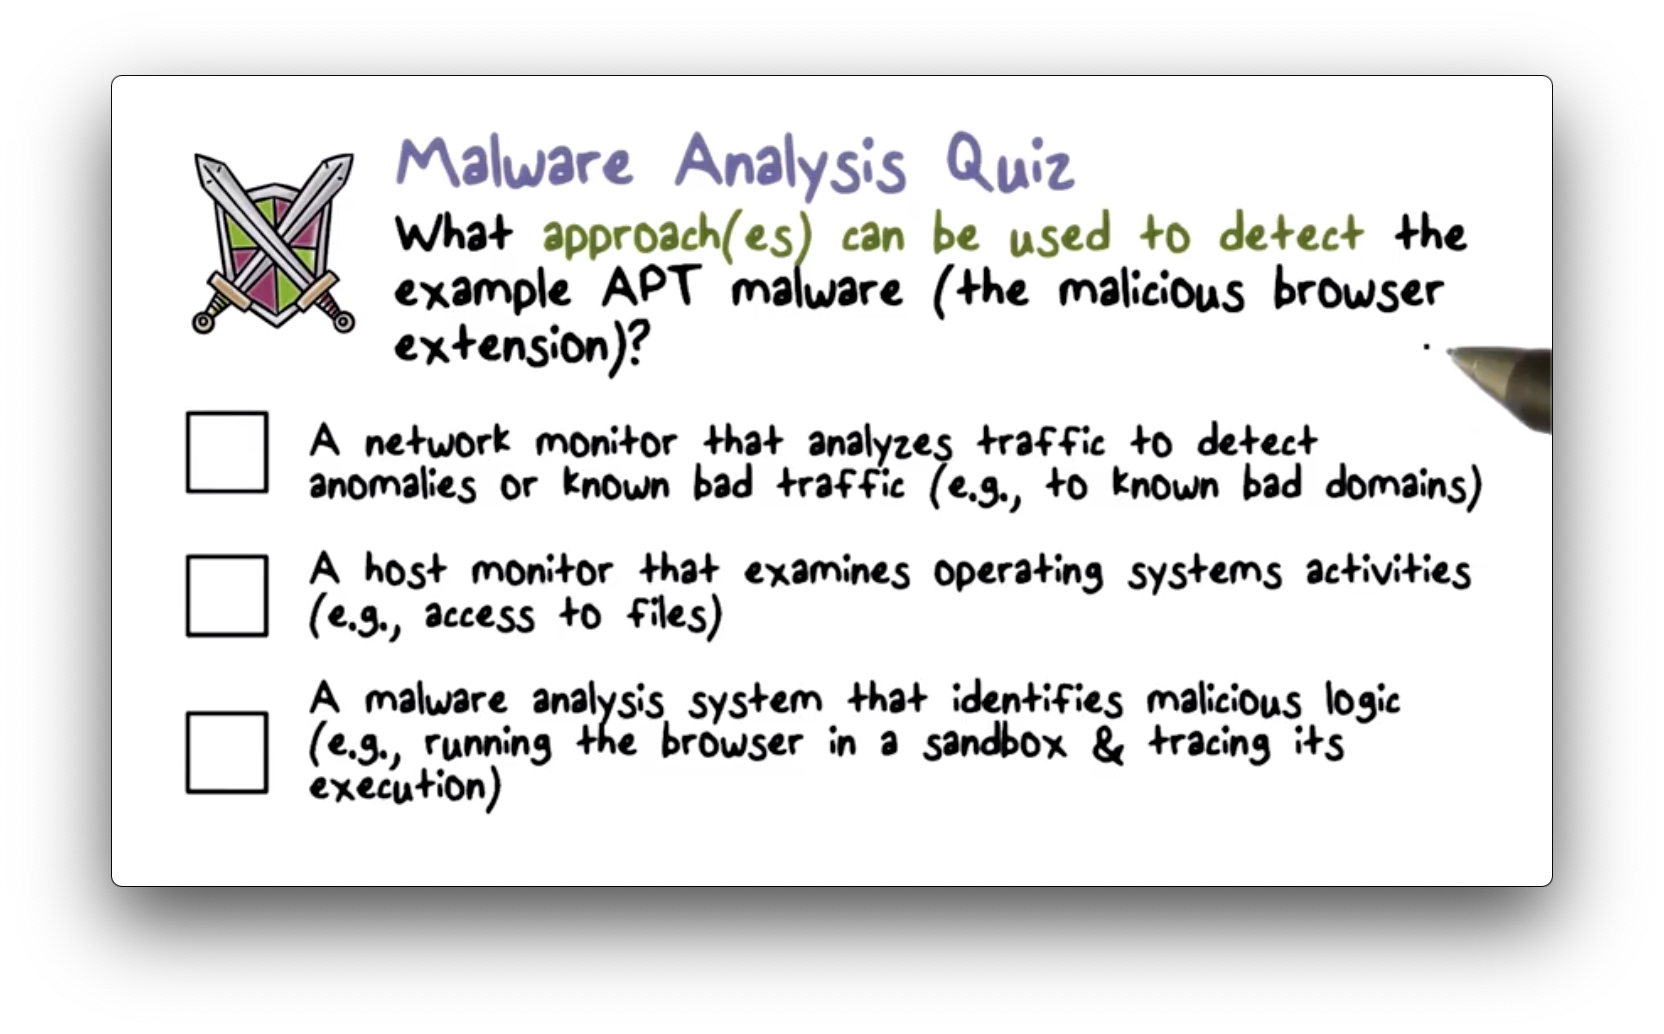 Malware Analysis Quiz
What approach(es) can be used to detect the
example APT malware (the malicious browser
extension)?
A network monitor that analyzes traffic to detect
anomalies or known bad traffic (e.g., to known bad domains)
A host monitor that examines operating systems activities
(e.g., access to files)
A malware analysis system that identifies malicious logic
(e.g., running the browser in a sandbox & tracing its
execution)